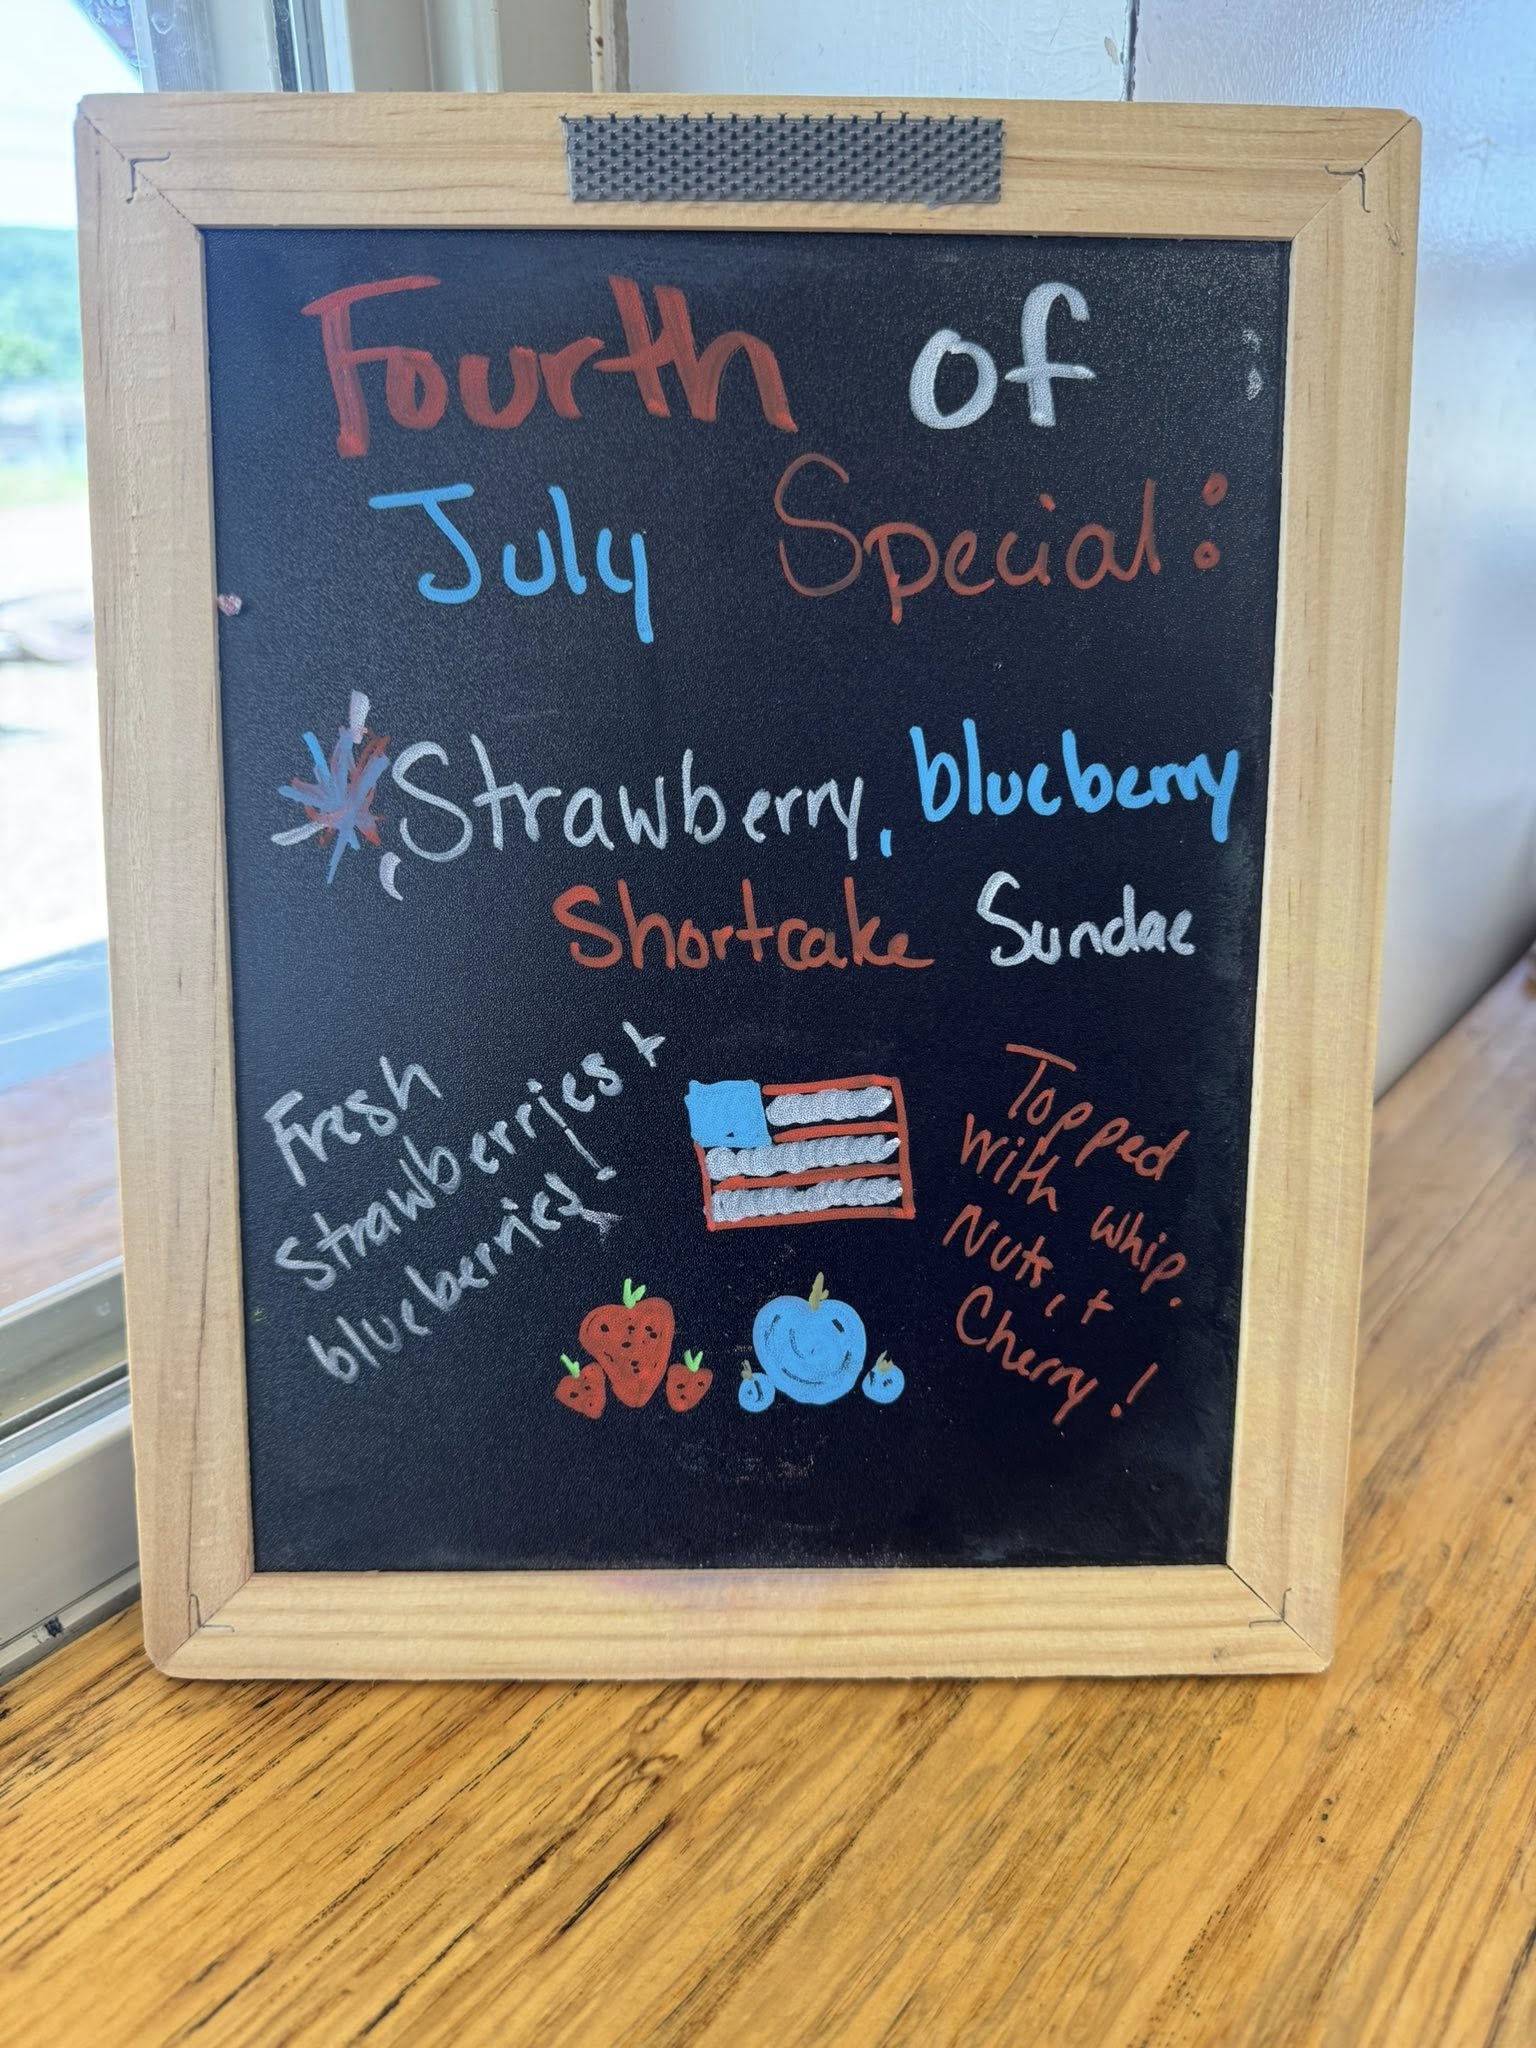 Fourth of
July Special:
Strawberry, blueberry
Shortcake Sundae
Fresh
Strawberries +
blueberries!
Topped
with whip,
Nuts, +
Cherry!